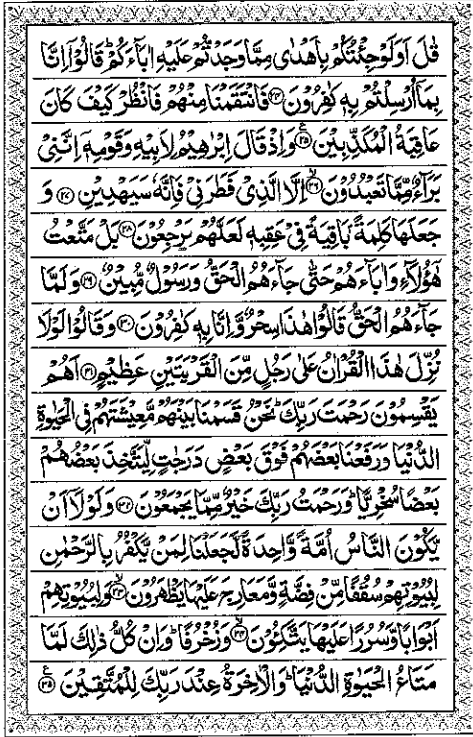 قٰلَ اَوَلَوْ جِئْتُكُمْ بِاَهْدٰى مِمَّا وَجَدْتُّمْ عَلَيْهِ اٰبَآءَكُمْ ؕ قَالُوْۤا اِنَّا
بِمَاۤ اُرْسِلْتُمْ بِهٖ كٰفِرُوْنَ ﴿۲۴﴾ فَانْتَقَمْنَا مِنْهُمْ فَانْظُرْ كَيْفَ كَانَ
عَاقِبَةُ الْمُكَذِّبِيْنَ ﴿۲۵﴾ وَاِذْ قَالَ اِبْرٰهِيْمُ لِاَبِيْهِ وَقَوْمِهٖۤ اِنَّنِيْ
بَرَآءٌ مِّمَّا تَعْبُدُوْنَ ﴿۲۶﴾ اِلَّا الَّذِيْ فَطَرَنِيْ فَاِنَّهٗ سَيَهْدِيْنِ ﴿۲۷﴾ وَ
جَعَلَهَا كَلِمَةًۢ بَاقِيَةً فِيْ عَقِبِهٖ لَعَلَّهُمْ يَرْجِعُوْنَ ﴿۲۸﴾ بَلْ مَتَّعْتُ
هٰۤؤُلَآءِ وَاٰبَآءَهُمْ حَتّٰى جَآءَهُمُ الْحَقُّ وَرَسُوْلٌ مُّبِيْنٌ ﴿۲۹﴾ وَلَمَّا
جَآءَهُمُ الْحَقُّ قَالُوْا هٰذَا سِحْرٌ وَّاِنَّا بِهٖ كٰفِرُوْنَ ﴿۳۰﴾ وَقَالُوْا لَوْلَا
نُزِّلَ هٰذَا الْقُرْاٰنُ عَلٰى رَجُلٍ مِّنَ الْقَرْيَتَيْنِ عَظِيْمٍ ﴿۳۱﴾ اَهُمْ
يَقْسِمُوْنَ رَحْمَتَ رَبِّكَ ؕ نَحْنُ قَسَمْنَا بَيْنَهُمْ مَّعِيْشَتَهُمْ فِي الْحَيٰوةِ
الدُّنْيَا وَرَفَعْنَا بَعْضَهُمْ فَوْقَ بَعْضٍ دَرَجٰتٍ لِّيَتَّخِذَ بَعْضُهُمْ
بَعْضًا سُخْرِيًّا ؕ وَرَحْمَتُ رَبِّكَ خَيْرٌ مِّمَّا يَجْمَعُوْنَ ﴿۳۲﴾ وَلَوْلَاۤ اَنْ
يَّكُوْنَ النَّاسُ اُمَّةً وَّاحِدَةً لَّجَعَلْنَا لِمَنْ يَّكْفُرُ بِالرَّحْمٰنِ
لِبُيُوْتِهِمْ سُقُفًا مِّنْ فِضَّةٍ وَّمَعَارِجَ عَلَيْهَا يَظْهَرُوْنَ ﴿۳۳﴾ وَلِبُيُوْتِهِمْ
اَبْوَابًا وَّسُرُرًا عَلَيْهَا يَتَّكِـُٔوْنَ ﴿۳۴﴾ وَزُخْرُفًا ؕ وَاِنْ كُلُّ ذٰلِكَ لَمَّا
مَتَاعُ الْحَيٰوةِ الدُّنْيَا ؕ وَالْاٰخِرَةُ عِنْدَ رَبِّكَ لِلْمُتَّقِيْنَ ﴿۳۵﴾ ع